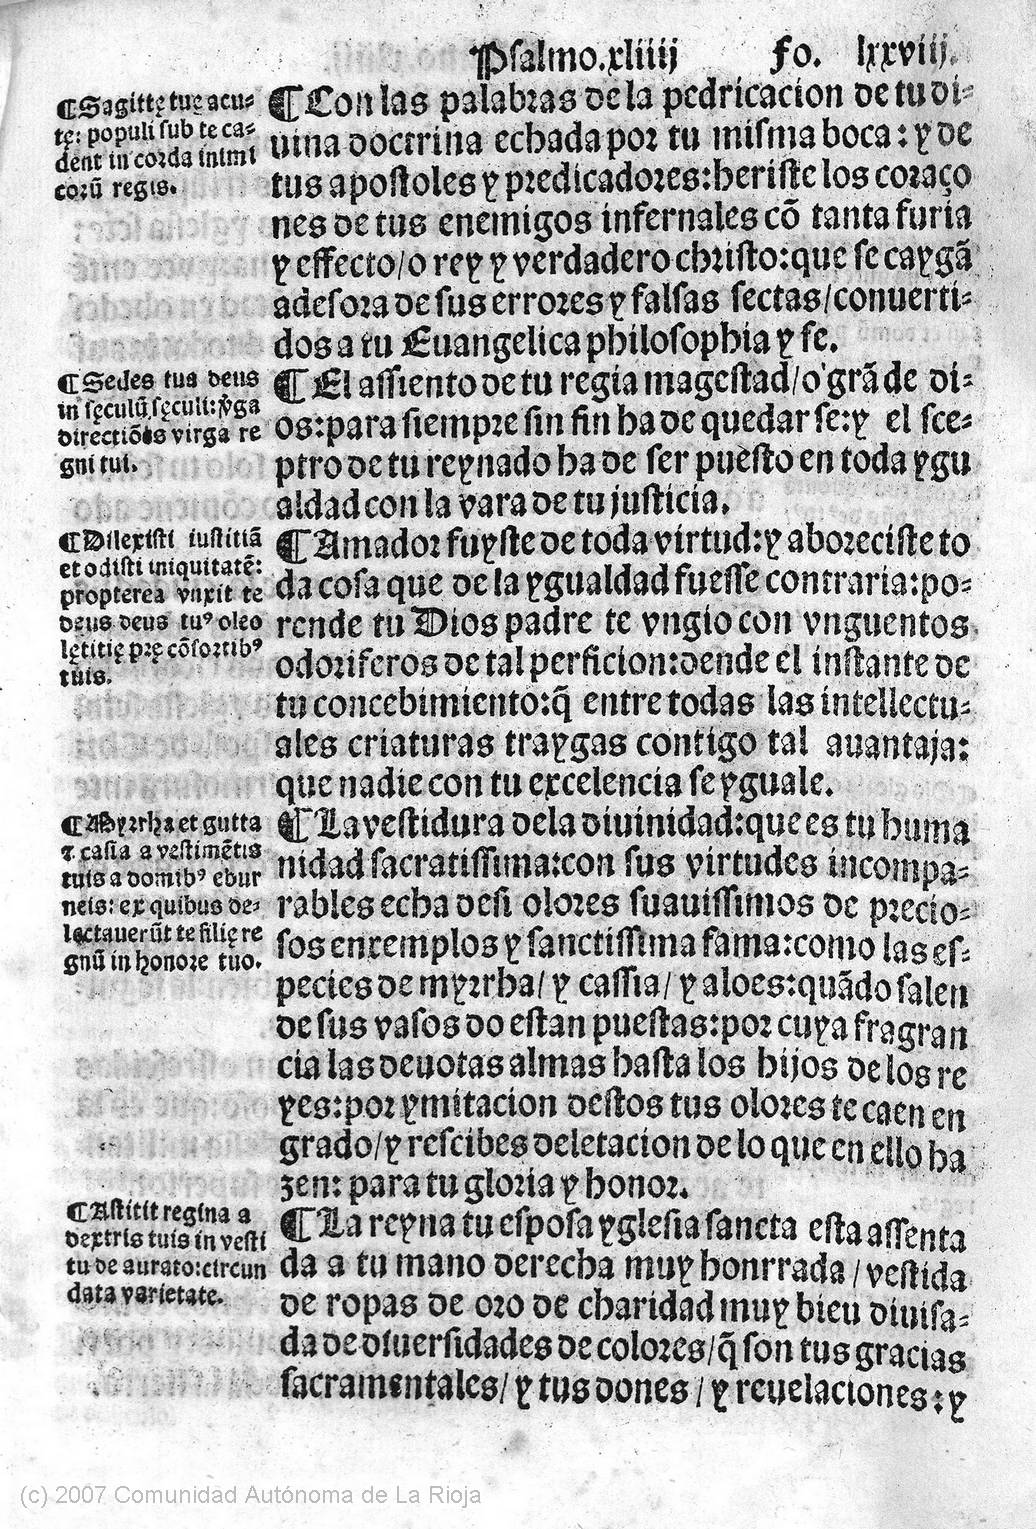 Psalmo.xliiij fo. lxxviij.
¶Sagittę tuę acu-
tę: populi sub te ca-
dent in corda inimi
corū regis.
¶Con las palabras de la pedricacion de tu di-
uina doctrina echada por tu misma boca: y de
tus apostoles y predicadores: heriste los coraço
nes de tus enemigos infernales cõ tanta furia
y effecto/o rey y verdadero christo: que se caygã
adesora de sus errores y falsas sectas/conuerti-
dos a tu Euangelica philosophia y fe.
¶Sedes tua deus
in sęculū sęculi: v̄ga
directiõis virga re
gni tui.
¶El assiento de tu regia magestad/o grãde di-
os: para siempre sin fin ha de quedar se: y el sce-
ptro de tu reynado ha de ser puesto en toda ygu
aldad con la vara de tu justicia.
¶Dilexisti iustitiã
et odisti iniquitatē:
propterea vnxit te
deus deus tuꝰ oleo
lętitię prę cõsortibꝰ
tuis.
¶Amador fuyste de toda virtud: y aboreciste to
da cosa que de la ygualdad fuesse contraria: po-
rende tu Dios padre te vngio con vnguentos
odoriferos de tal perficion: dende el instante de
tu concebimiento: q̃ entre todas las intellectu-
ales criaturas traygas contigo tal auantaja:
que nadie con tu excelencia se yguale.
¶Myrrha et gutta
⁊ casia a vestimẽtis
tuis a domibꝰ ebur
neis: ex quibus de-
lectauerūt te filię re
gnū in honore tuo.
¶La vestidura dela diuinidad: que es tu huma
nidad sacratissima: con sus virtudes incompa-
rables echa desi olores suauissimos de precio-
sos enxemplos y sanctissima fama: como las es-
pecies de myrrha/ y cassia/ y aloes: quãdo salen
de sus vasos do estan puestas: por cuya fragran
cia las deuotas almas hasta los hijos de los re
yes: por ymitacion destos tus olores te caen en
grado/y rescibes deletacion de lo que en ello ha
zen: para tu gloria y honor.
¶Astitit regina a
dextris tuis in vesti
tu de aurato: circun
data varietate.
¶La reyna tu esposa yglesia sancta esta assenta
da a tu mano derecha muy honrrada/vestida
de ropas de oro de charidad muy bieu diuisa-
da de diuersidades de colores/q̃ son tus gracias
sacramentales/ y tus dones / y reuelaciones: y
(c) 2007 Comunidad Autónoma de La Rioja